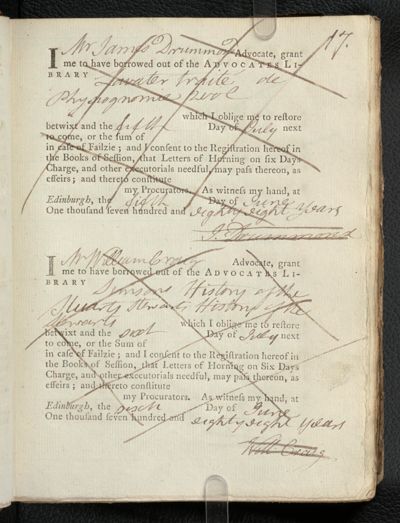 17.
I Mr James Drummond Advocate, grant
me to have borrowed out of the ADVOCATES LI-
BRARY Lavater traité de
Physiognomie
which I oblige me to restore
betwixt and the sixth Day of July next
to come, or the sum of
in case of Failzie; and I consent to the Registration hereof in
the Books of Session, that Letters of Horning on six Days
Charge, and other executorials needful may pass thereon, as
effeirs; and thereto constitute
my Procurators. As witness my hand, at
Edinburgh, the sixth Day of June
One thousand seven hundred and eighty eight years
J. Drummond
I Mr William Craig Advocate, grant
me to have borrowed out of the ADVOCATES LI-
BRARY History of the
Stuarts Stewarts History of the
Stewarts which I oblige me to restore
betwixt and the sixt Day of July next
to come, or the Sum of
in case of Failzie; and I consent to the Registration hereof in
the Books of Session, that Letters of Horning on Six Days
Charge, and other executorials needful, may pass thereon, as
effeirs; and thereto constitute
my Procurators. As witness my hand, at
Edinburgh, the Day of June
One thousand seven hundred and eighty eight years
Will Craig